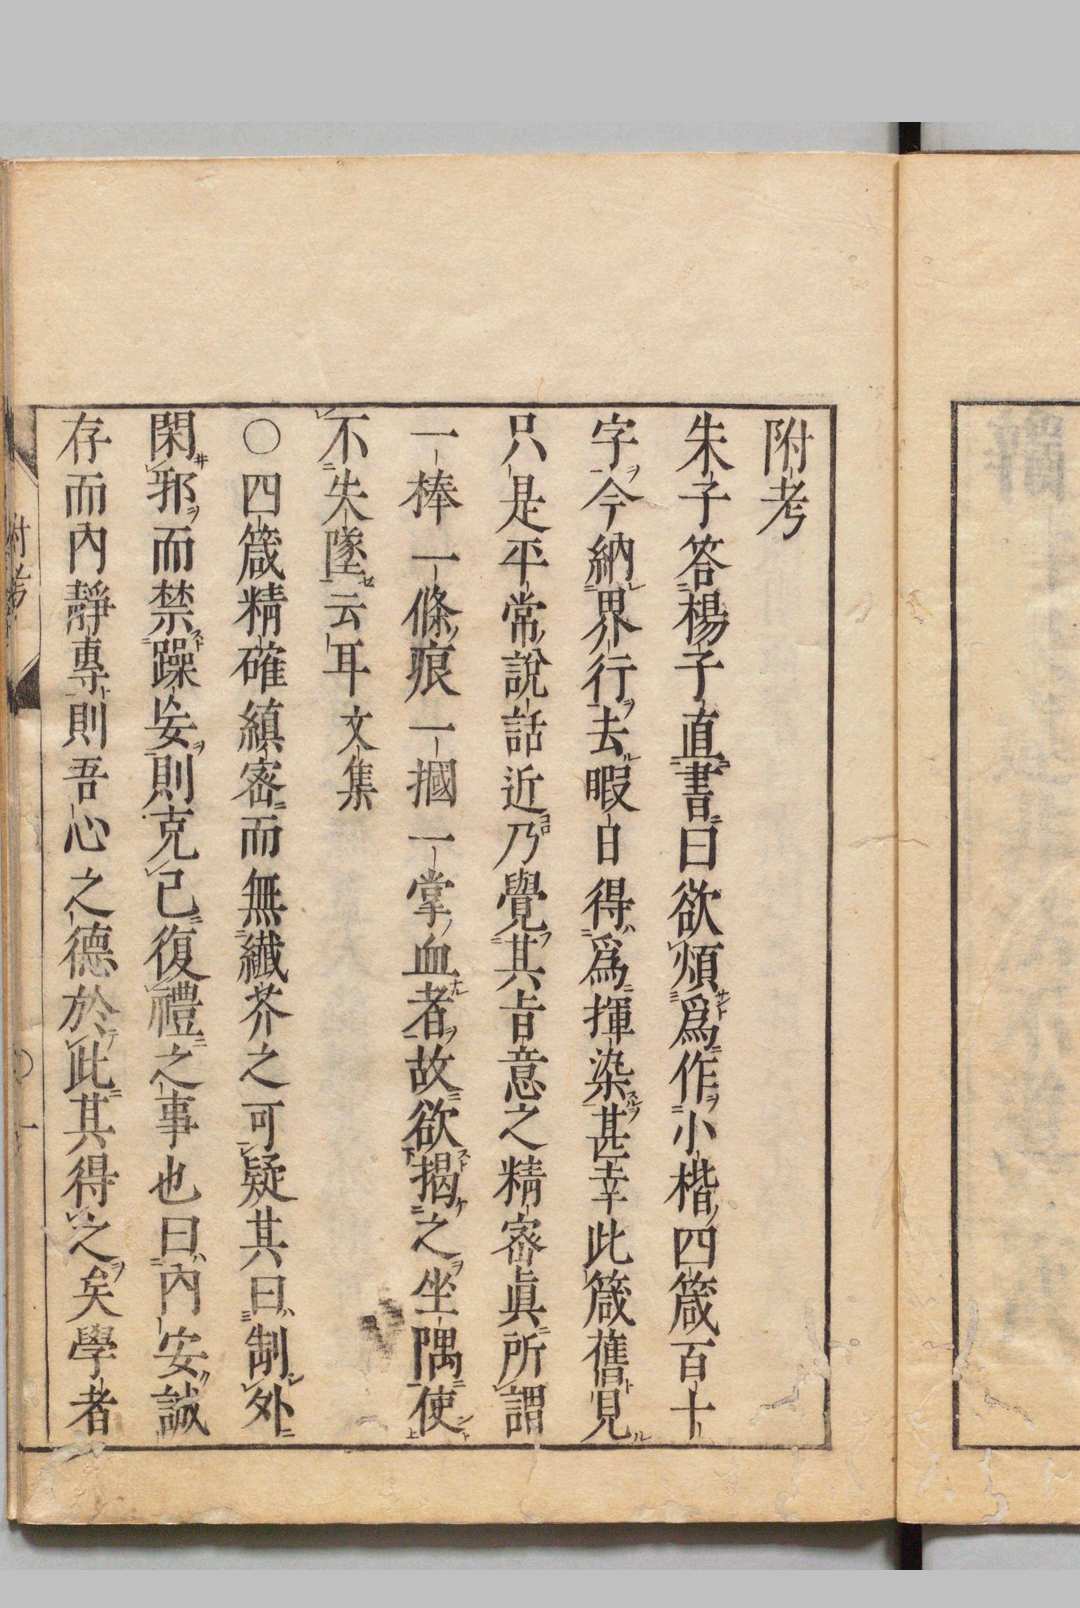 附考
朱子答楊子直書曰欲煩爲作小楷四箴百十
字今納界行去暇日得爲揮染甚幸此箴舊見
只是平常說話近乃覺其旨意之精密眞所謂
一棒一條痕一摑一掌血者故欲揭之坐隅使
不失墜云耳 文集
○四箴精確縝密而無纖芥之可疑其曰制外
閑邪而禁躁妄則克己復禮之事也曰內安誠
存而內靜專則吾心之德於此其得之矣學者
附考
○一